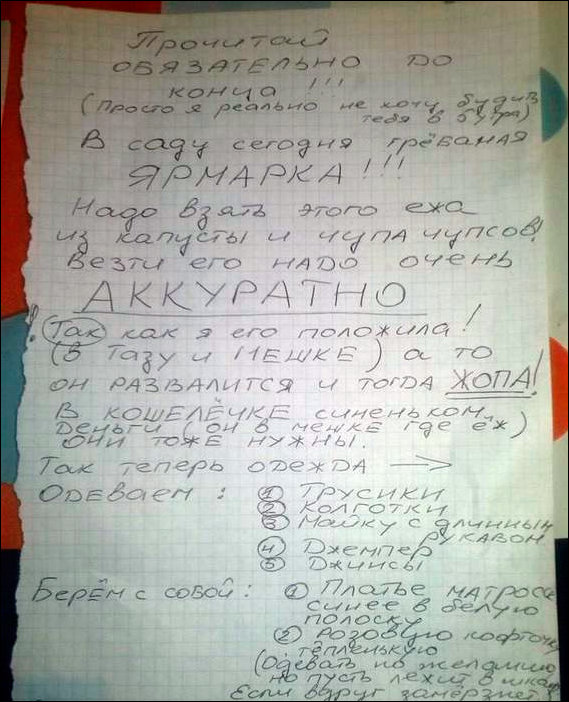 Прочитай
ОБЯЗАТЕЛЬНО ДО
конца !!!
(Просто я реально не хочу будить
тебя в 6 утра)
В саду сегодня грёбаная
ЯРМАРКА!!!
Надо взять этого ежа
из капусты и чупа чупсов!
Везти его НАДО очень
АККУРАТНО
! Так как я его положила!
(В Тазу и МЕШКЕ) а то
он РАЗВАЛИТСЯ и тогда ЖОПА!
В КОШЕЛЁЧКЕ синеньком
Деньги (он в мешке где ёж)
ОНИ ТОЖЕ НУЖНЫ.
Так теперь одежда →
Одеваем : ① Трусики
② Колготки
③ Майку с длинным
рукавом
④ Джемпер
⑤ Джинсы
Берём с собой : ① Платье матросс
синее в белую
полоску
② Розовую кофточк
тёпленькую
(Одевать по желанию
но пусть лежит в шка
Если вдруг замёрзнет)